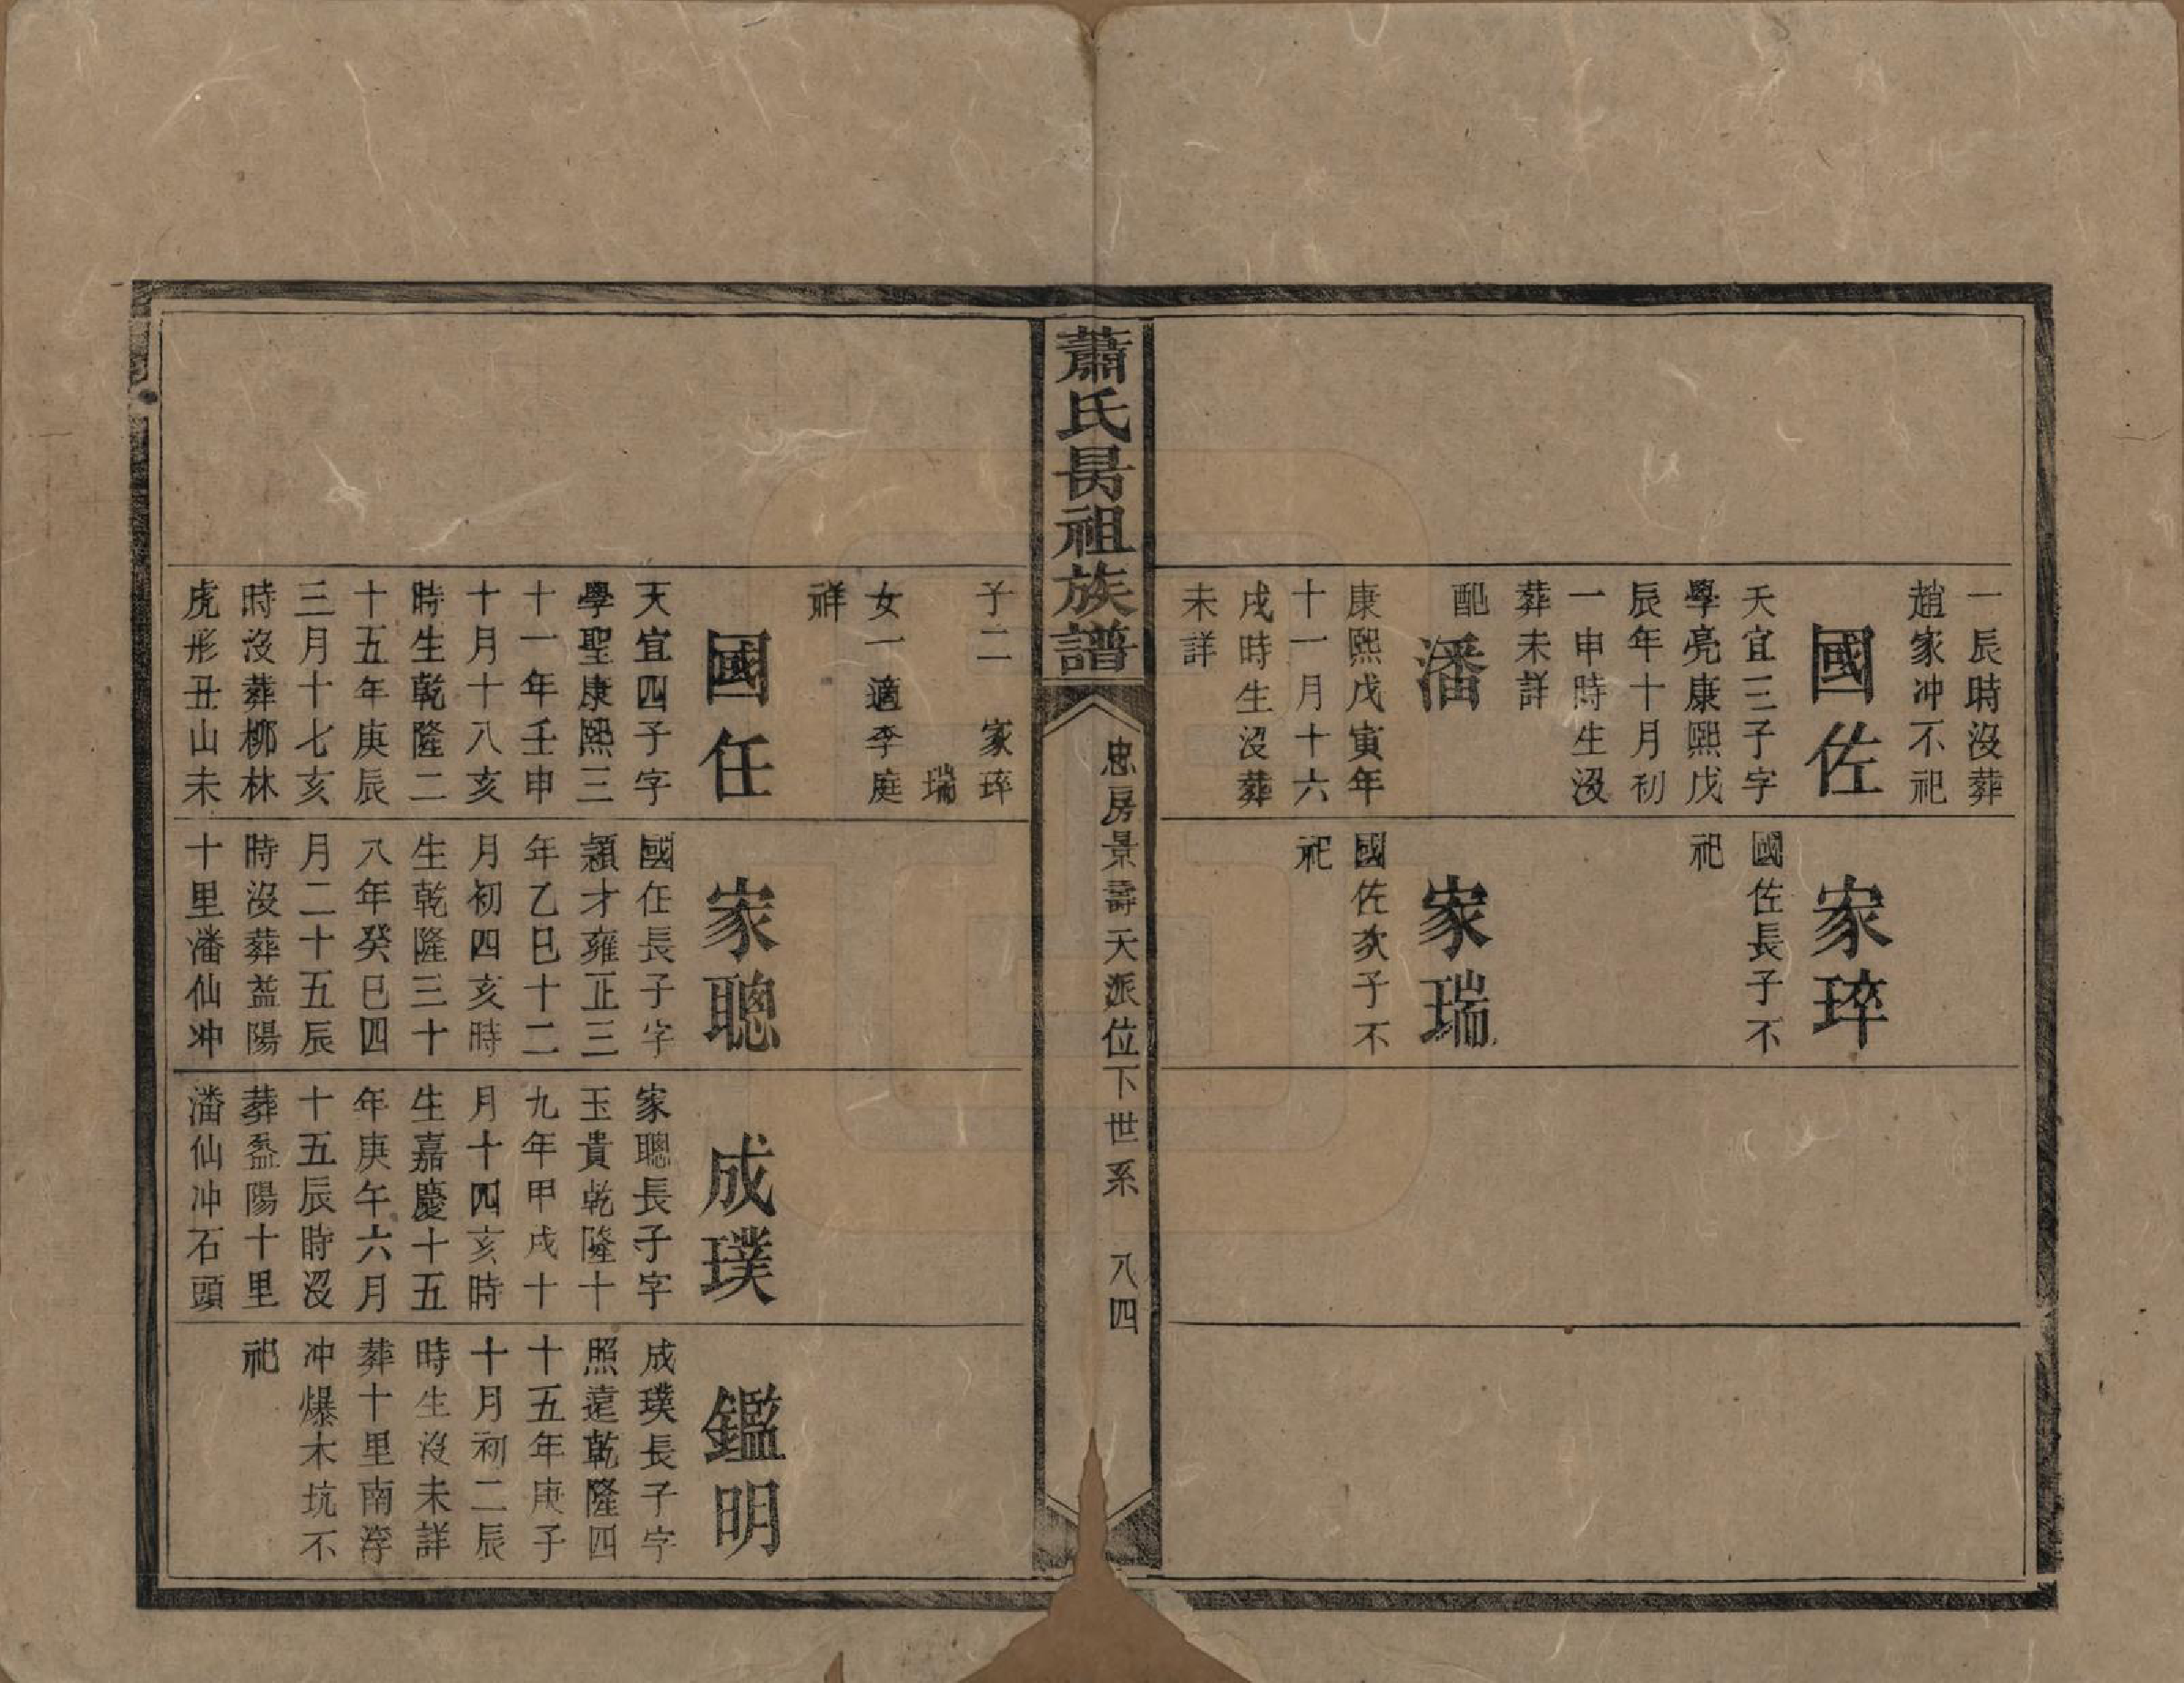 一辰時沒葬
趙家冲不祀
國佐
天宜三子字
學亮康熙戊
辰年十月初
一申時生沒
葬未詳
配
潘
康熙戊寅年
十一月十六
戌時生沒葬
未詳
家琗
國佐長子不
祀
家瑞
國佐次子不
祀
蕭氏昺祖族譜
忠房景壽天派位下世系
八四
子二
家琗
瑞
女一適李庭
祥
國任
天宜四子字
學聖康熙三
十一年壬申
十月十八亥
時生乾隆二
十五年庚辰
三月十七亥
時沒葬柳林
虎形丑山未
家聰
國任長子字
頴才雍正三
年乙巳十二
月初四亥時
生乾隆三十
八年癸巳四
月二十五辰
時沒葬益陽
十里潘仙冲
成璞
家聰長子字
玉貴乾隆十
九年甲戌十
月十四亥時
生嘉慶十五
年庚午六月
十五辰時沒
葬益陽十里
潘仙冲石頭
鑑明
成璞長子字
照遠乾隆四
十五年庚子
十月初二辰
時生沒未詳
葬十里南浡
冲爆木坑不
祀